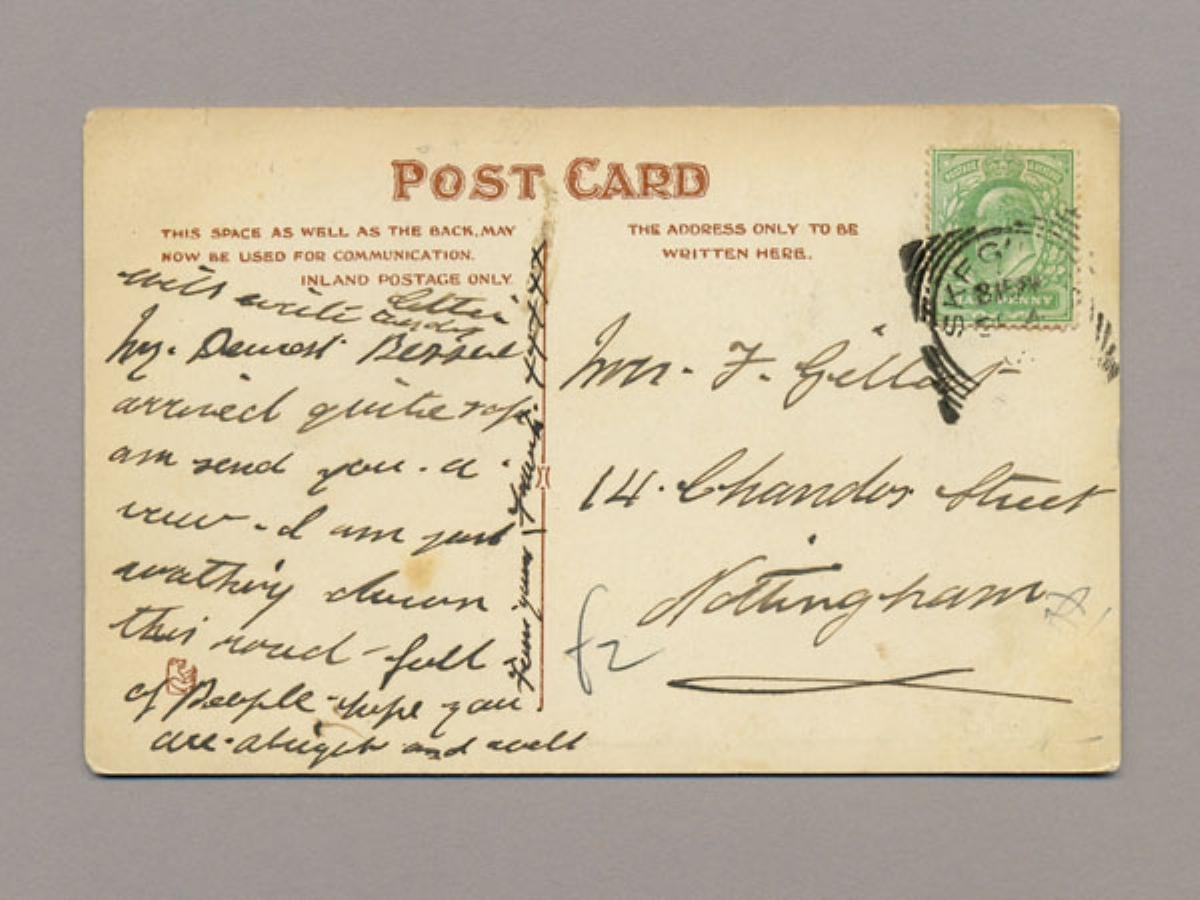 POST CARD
THIS SPACE AS WELL AS THE BACK, MAY
NOW BE USED FOR COMMUNICATION.
INLAND POSTAGE ONLY.
THE ADDRESS ONLY TO BE
WRITTEN HERE.
HALFPENNY
SKEG
will write letter
My. Dearest
arrived quite safe
am send you. a
view - I am just
walking down
this road - full
of People - hope you
are. alright and well
from yours
xxxx
Mrs. F. Gillott
14. Chandos Street
Nottingham
£2